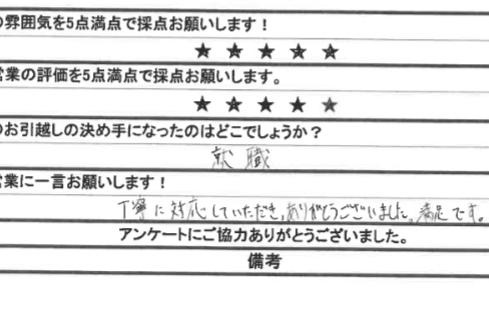 の雰囲気を5点満点で採点お願いします！
★ ★ ★ ★ ★
営業の評価を5点満点で採点お願いします。
★ ★ ★ ★ ★
のお引越しの決め手になったのはどこでしょうか？
就職
営業に一言お願いします！
丁寧に対応していただき、ありがとうございました。満足です。
アンケートにご協力ありがとうございました。
備考